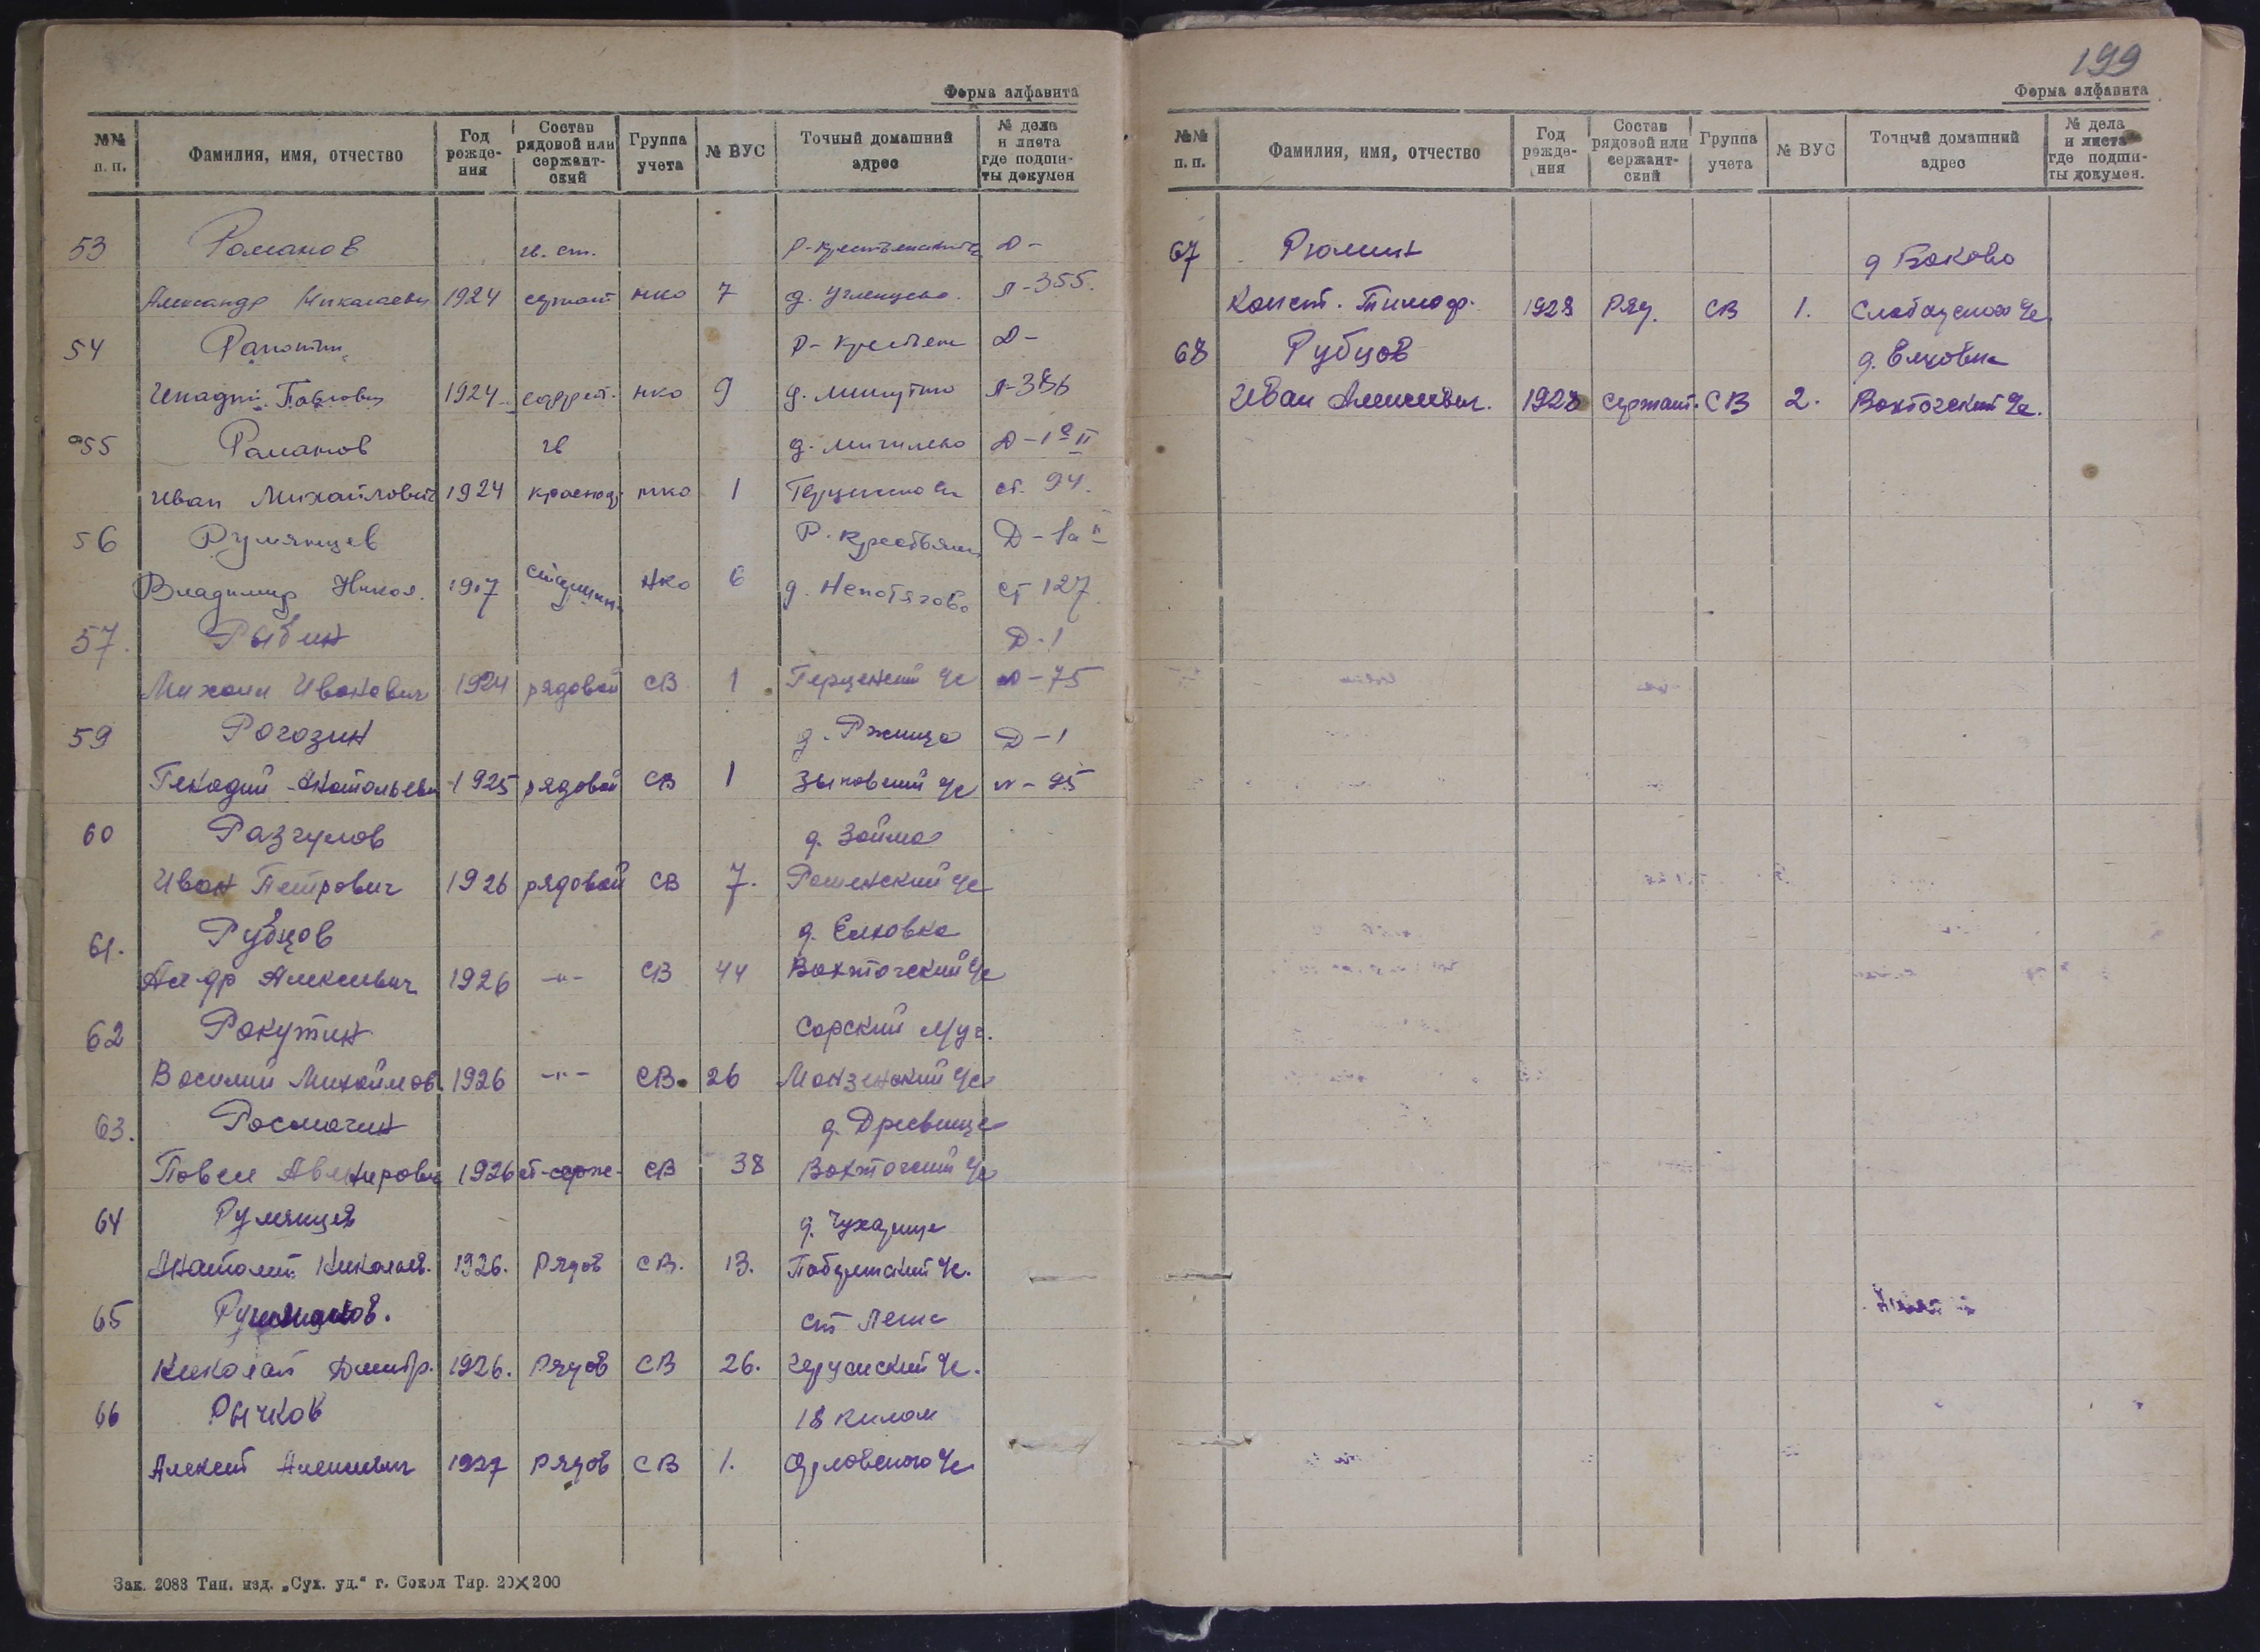 Форма алфавита
№№ п. п. Фамилия, имя, отчество Год рожде- ния Состав рядовой или сержант- ский Группа учета № ВУС Точный домашний адрес № дела и листа где подши- ты докумен
53 Романов гв. ст. Д-
Александр Николаевич 1924 сержант нко 7 д. Угленцево. л-355.
54 Р- Крестьян Д-
Павлович 1924 ефрейт. нко 9 д. л-386
55 Романов гв д. Д-1а II
Иван Михайлович 1924 нко 1 ст. 94.
56 Румянцев Р. Крестьян Д-1а II
Владимир Никол. 1917 старшин. нко 6 д. Непотягово ст 127
57. Рыбин Д-1
Михаил Иванович 1924 рядовой СВ 1 Герценский Чс 75
59 Рогозин д. Ржище Д-1
Генадий Анатольевич 1925 рядовой СВ 1 Зыковский Чс 95
60 Разгулов д. Займа
Иван Петрович 1926 рядовой СВ 7. Роменский Чс
61. Рубцов д. Елховка
Ал-др Алексеевич 1926 -"- СВ 44 Вохтогский Чс
62 Рокутин
Василий Михайлов. 1926 -"- СВ. 26 Монзенский Чс
63. Росмогин д. Древище
Павел Авенирович 1926 ст-серж- СВ 38 Вохтогский Чс
64 Румянцев д.
Анатолий Николаев. 1926. Рядов СВ. 13. Чс.
65 ст Лежа
Николай Дмитр. 1926. Рядов СВ 26. Чс.
66 Рычков 18 килом
Алексей Алексеевич 1927 Рядов СВ 1. Чс
Зак. 2083 Тип. изд. „Сух. уд.“ г. Сокол Тир. 20×200
199
Форма алфавита
№№ п. п. Фамилия, имя, отчество Год рожде- ния Состав рядовой или сержант- ский Группа учета № ВУС Точный домашний адрес № дела и листа где подши- ты докумен.
67 Рюмин д Боково
Конст. Тимоф. 1928 Ряд. СВ 1. Чс
68 Рубцов д. Елховка
Иван Алексеевич. 1928 Сержант. СВ 2. Вохтогский Чс.